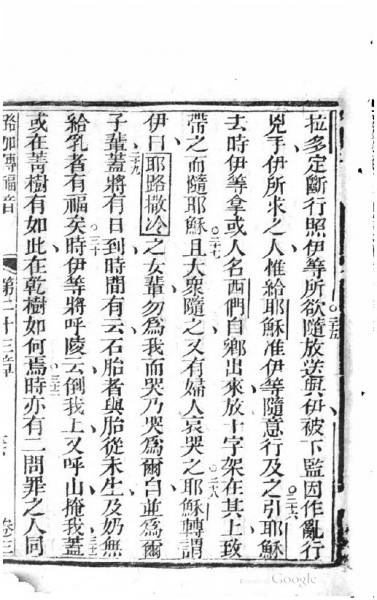 拉多定斷行照伊等所欲隨放送與伊被下監因作亂行
二五
兇手伊所求之人惟給耶穌准伊等隨意行及之引耶穌
二六
去時伊等拿或人名西們自鄉出來放十字架在其上致
帶之而隨耶穌且大衆隨之又有婦人哀哭之耶穌轉謂
二七
二八
伊曰耶路撒冷之女輩勿爲我而哭乃哭爲爾自並爲爾
二九
子輩蓋將有日到時間有云石胎者與胎從未生及奶無
給乳者有福矣時伊等將呼陵云倒我上又呼山掩我蓋
三十
三一
或在菁樹有如此在乾樹如何焉時亦有二問罪之人同
三二
路加傳福音
第二十三章
卷三
Google